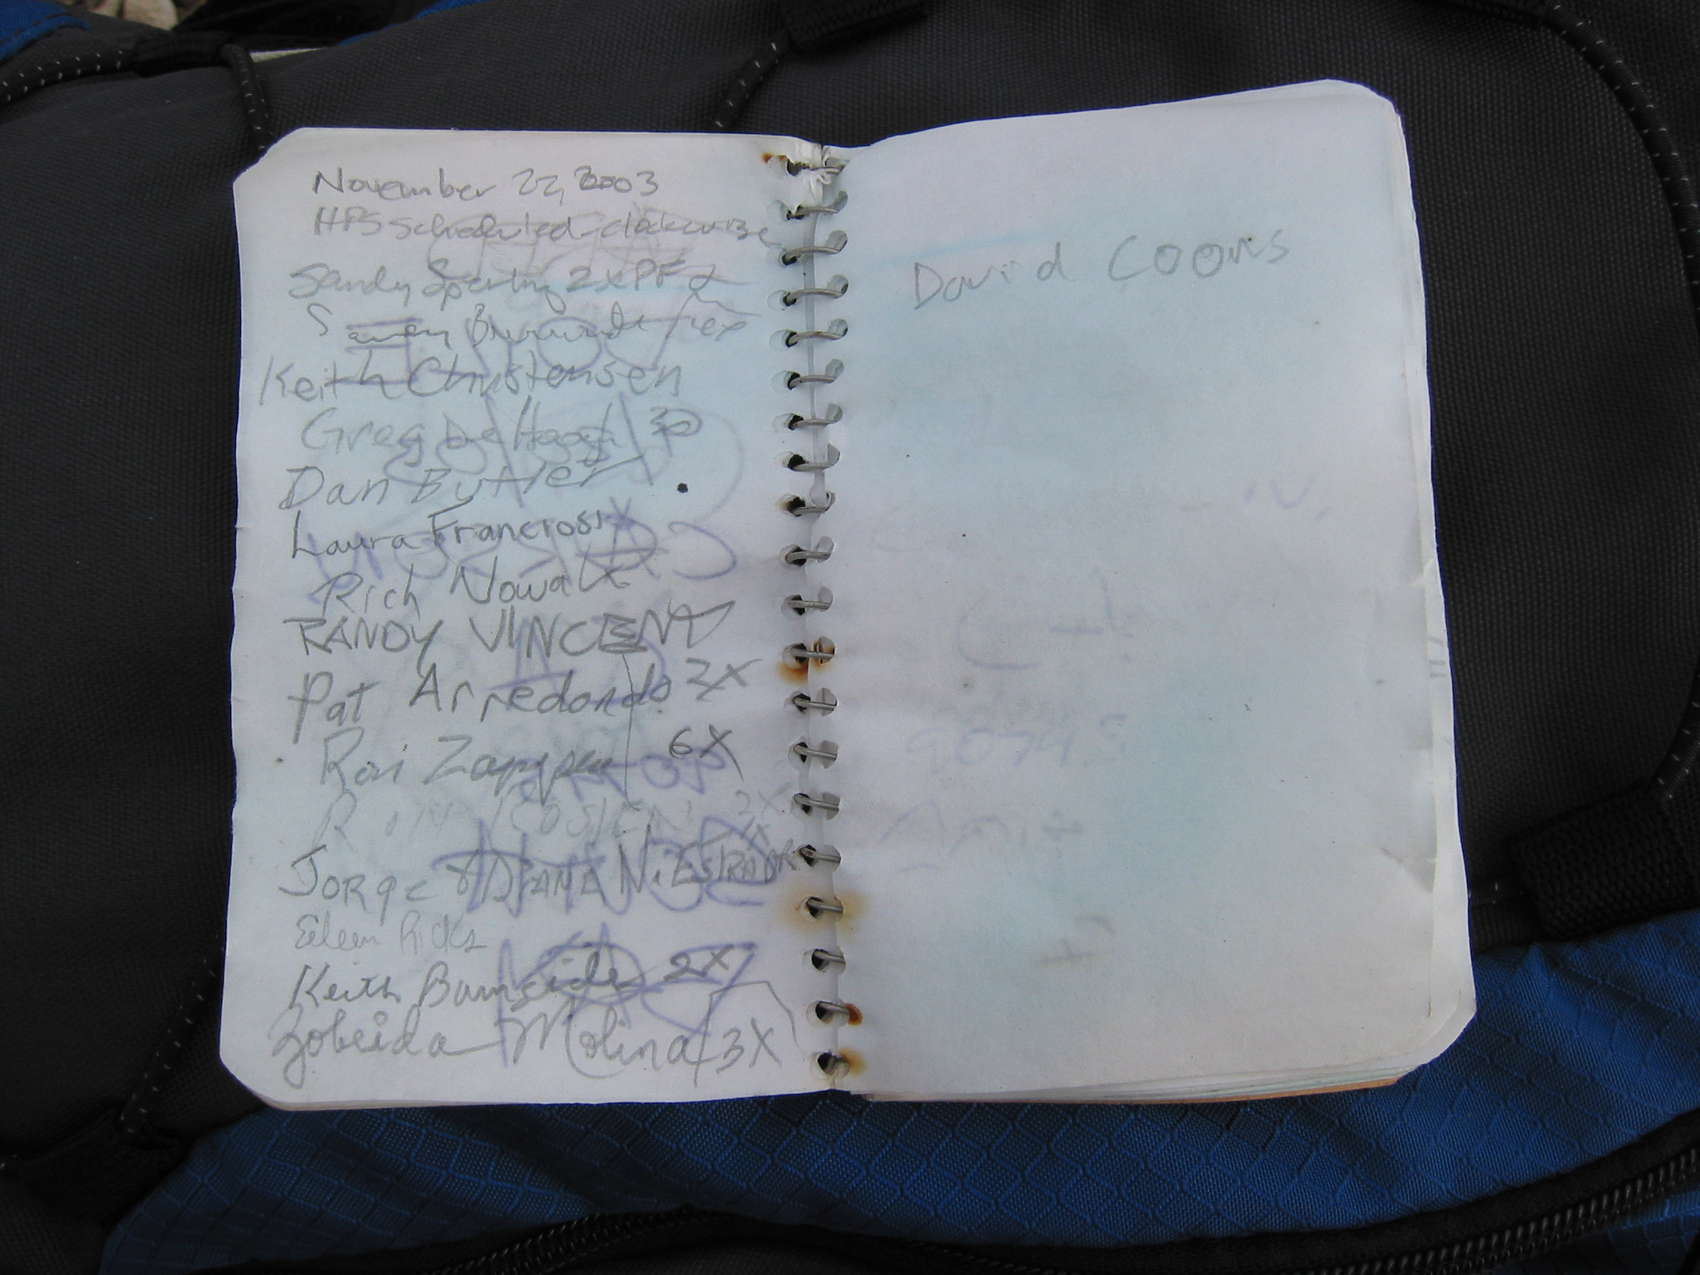 November 22, 2003
HPS scheduled clockwise
Sandy Sperling 2x PF2
Sandy
Keith Christensen
Greg De Hoogh
Dan Butler
Laura Francrosi
Rich Nowak
RANDY VINCENT
Pat Arredondo 2X
Ron Zappen 6X
RON
JORGE & DIANE
Eileen Ricks
Keith Burnside 2X
Zobeida Molina 3X
David Coons